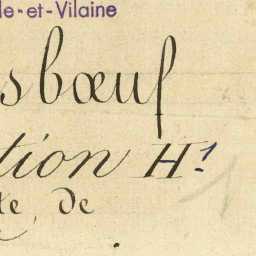 le-et-Vilaine
sbœuf
tion H¹.
te de